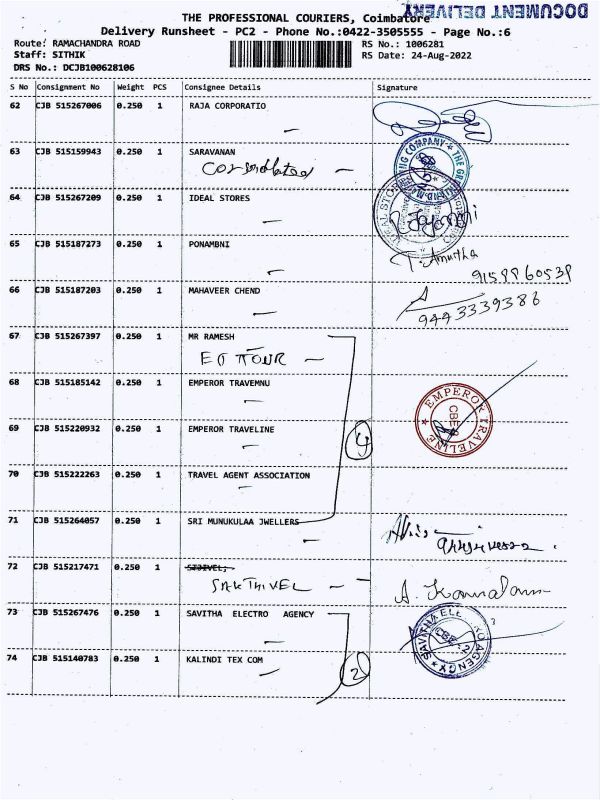 THE PROFESSIONAL COURIERS, Coimbatore
DOCUMENT DELIVERY
Delivery Runsheet - PC2 - Phone No.:0422-3505555 - Page No.:6
Route: RAMACHANDRA ROAD RS No.: 1006281
Staff: SITHIK RS Date: 24-Aug-2022
DRS No.: DCJB100628106
S No Consignment No Weight PCS Consignee Details Signature
62 CJB 515267006 0.250 1 RAJA CORPORATIO
63 CJB 515159943 0.250 1 SARAVANAN
64 CJB 515267209 0.250 1 IDEAL STORES
65 CJB 515187273 0.250 1 PONAMBNI
T. Amutha
9159860539
66 CJB 515187203 0.250 1 MAHAVEER CHEND
9443339386
67 CJB 515267397 0.250 1 MR RAMESH
68 CJB 515185142 0.250 1 EMPEROR TRAVEMNU
EMPEROR TRAVELINE
CBE
69 CJB 515220932 0.250 1 EMPEROR TRAVELINE
4
70 CJB 515222263 0.250 1 TRAVEL AGENT ASSOCIATION
71 CJB 515264057 0.250 1 SRI MUNUKULAA JWELLERS
72 CJB 515217471 0.250 1 STJIVEL,
SAKTHIVEL
A. Kamalam
73 CJB 515267476 0.250 1 SAVITHA ELECTRO AGENCY
74 CJB 515140783 0.250 1 KALINDI TEX COM
2